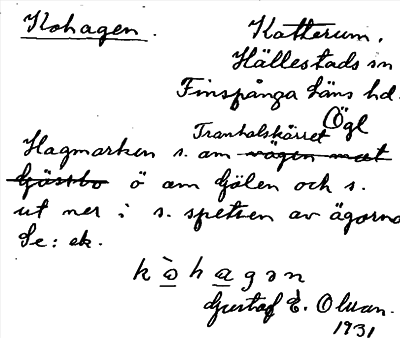 Kohagen.
Katterum.
Hällestads sn
Finspånga läns hd.
Ögl
Tranhalskärret
Hagmarken s. om vägen mot
Gåssbo ö om Gölen och s.
ut ner i s. spetsen av ägorna
Se: ek.
k ò h a g ə n
Gustaf E. Olsson.
1931